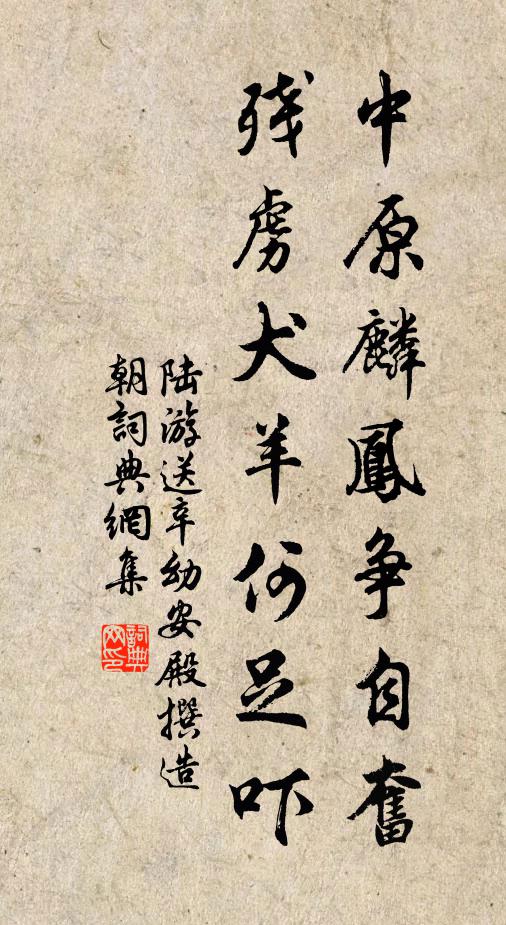 中原麟鳳争自奮
残虜犬羊何足吓
陆游送辛幼安殿撰造
朝詞典網集
詞典网印